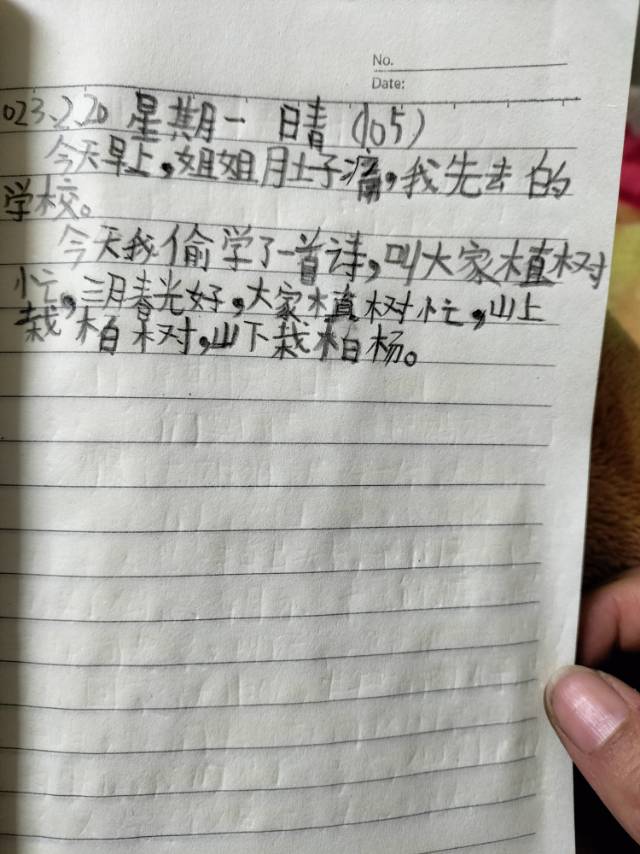 No.
Date:
023.2.20 星期一 日青 (105)
今天早上,姐姐月土子痛,我先去的
学校。
今天我偷学了一首诗,叫大家植树
忙,三月春光好,大家植树忙,山上
栽柏树,山下栽柏杨。